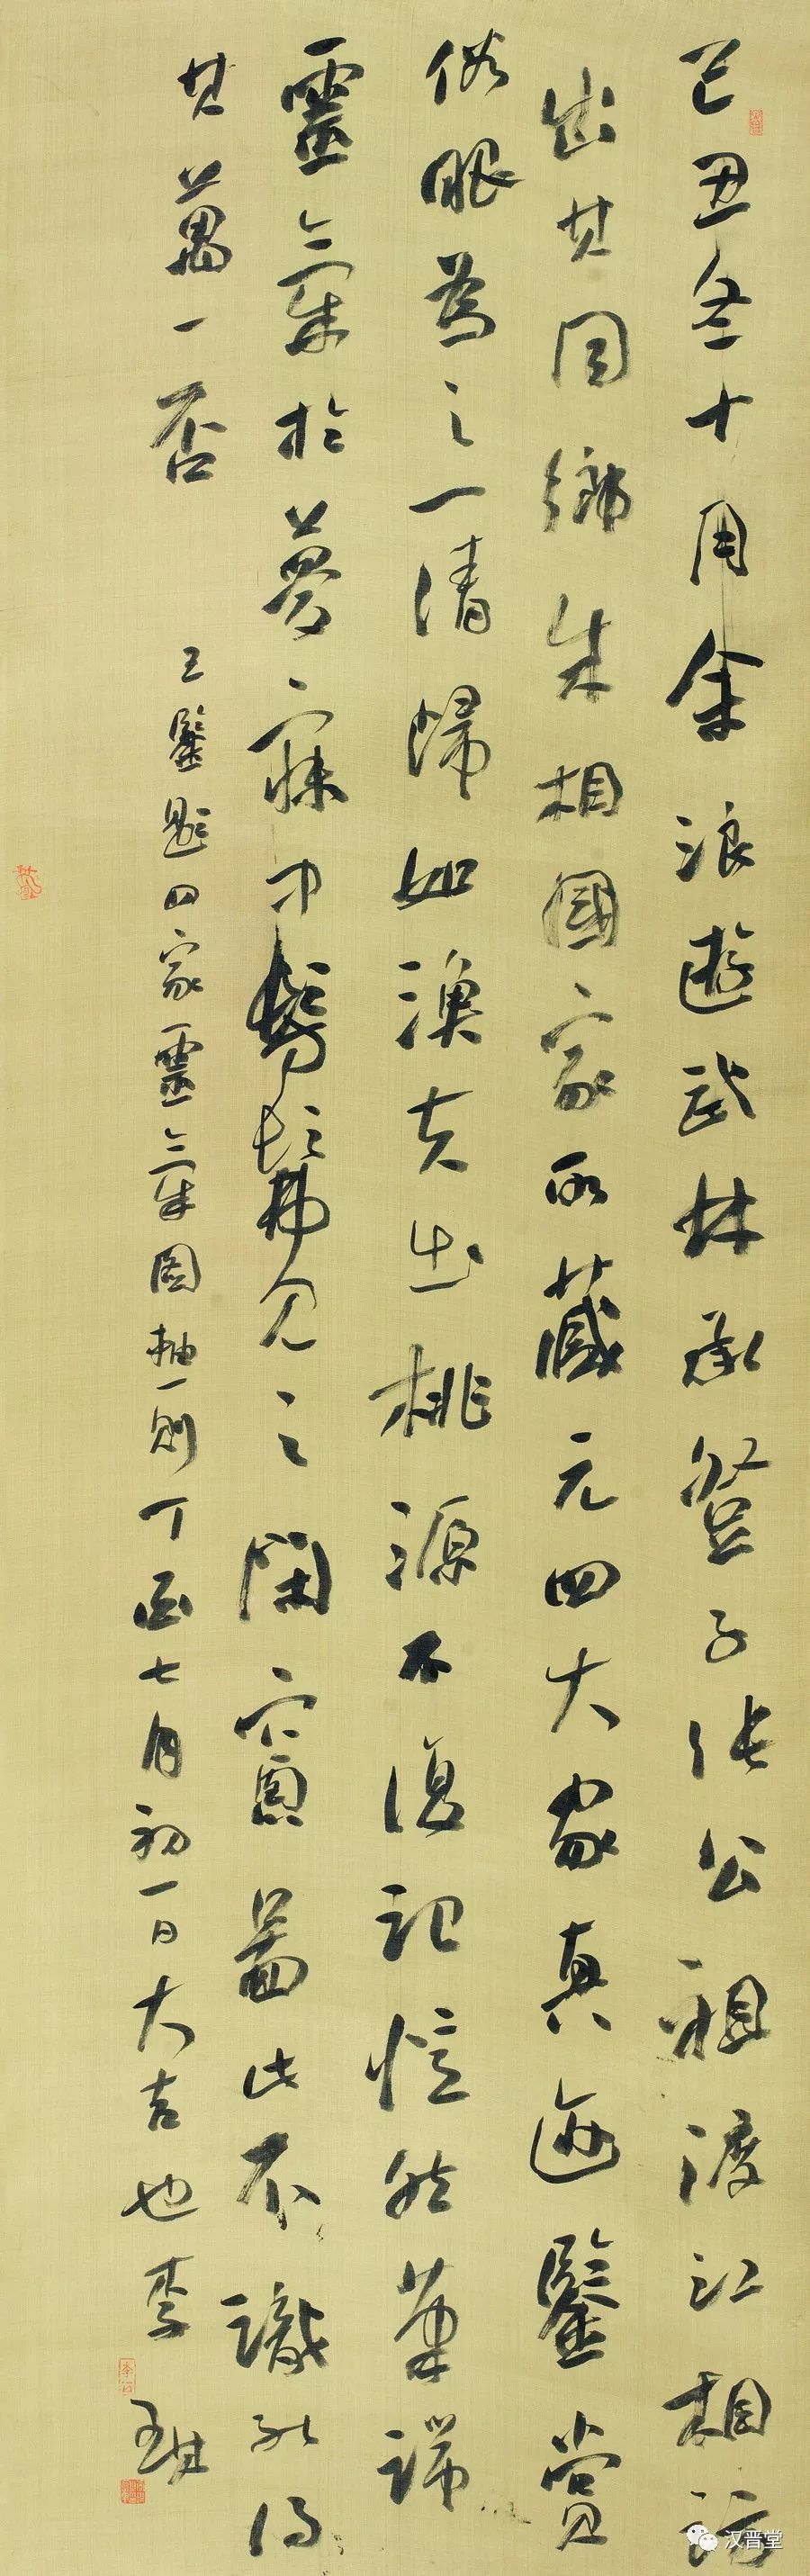 己丑冬十月余浪遊武林承登子張公祖渡江相訪
出其同鄉朱相國家所藏元四大家真迹鑒賞
俗眼為之一清歸如漁夫出桃源不復記憶然筆端
靈氣於夢寐中髣髴見之閑窗圖此不識能得
其萬一否
王鑒題四家靈氣圖軸一則丁酉七月初一日大吉也李琪
汉晋堂